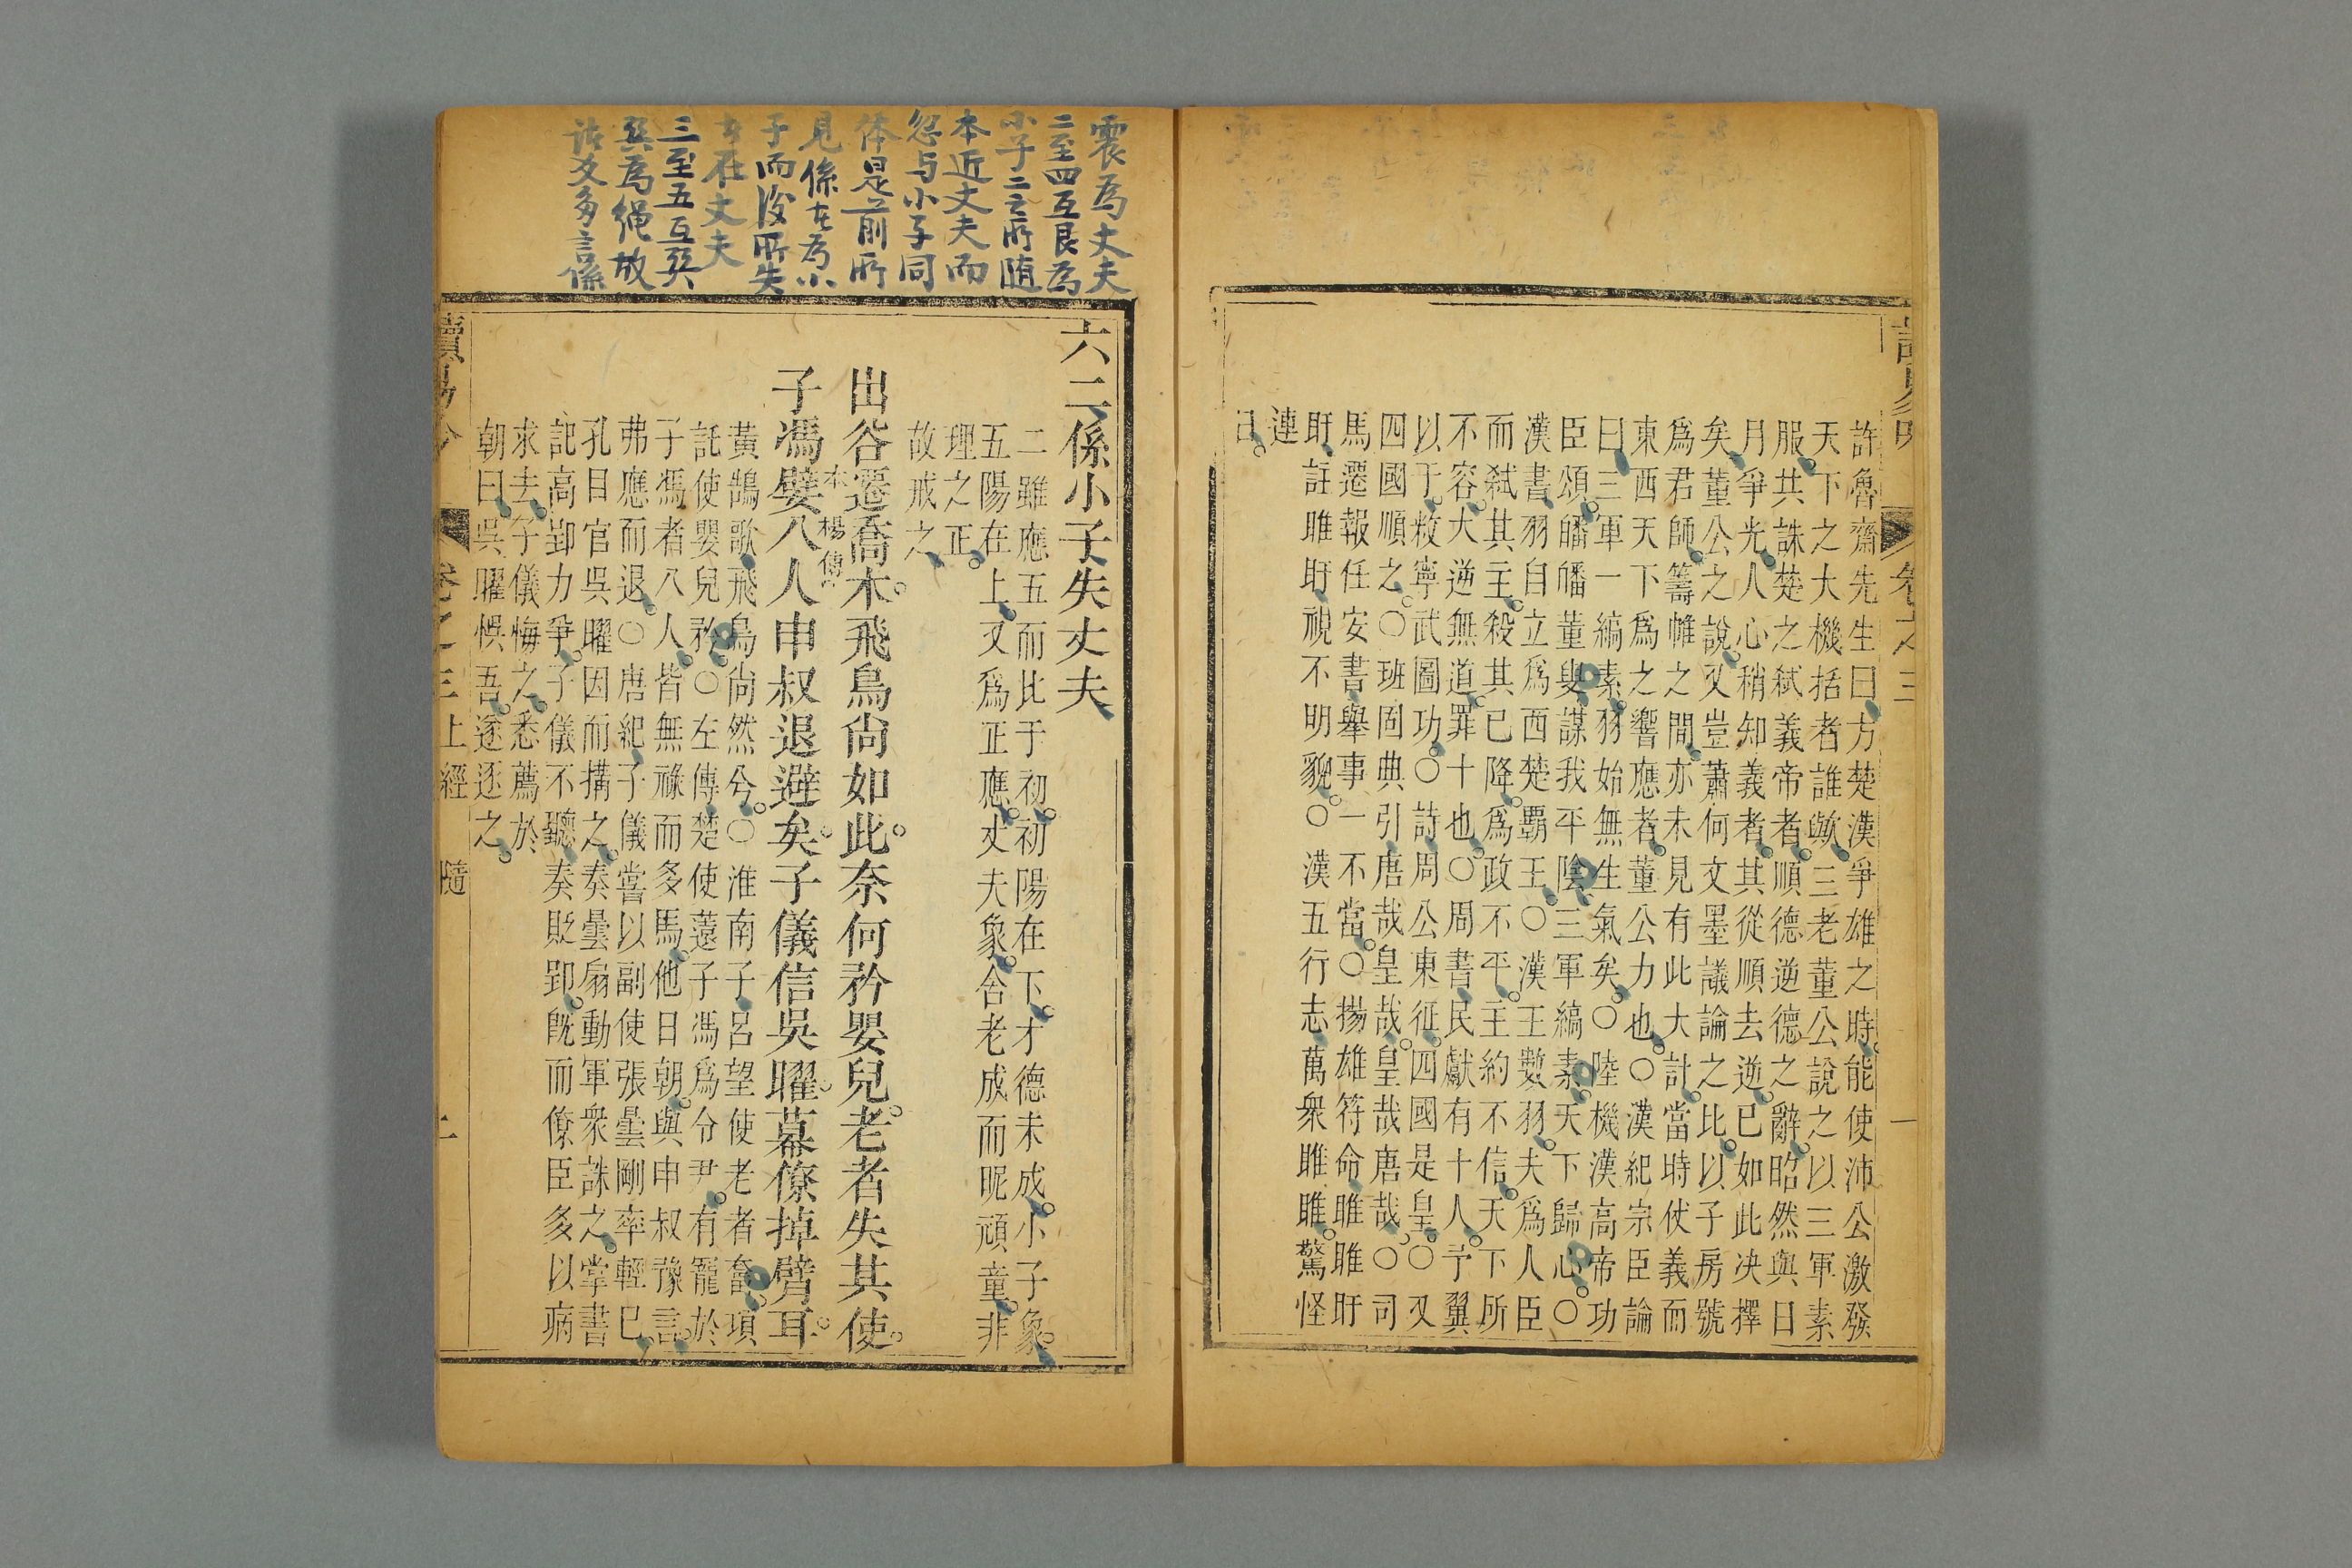 許魯齋先生曰方楚漢爭雄之時能使沛公激發
天下之大機括者誰歟三老董公說之以三軍素
服共誅楚之弑義帝者順德逆德之辭昭然與日
月爭光人心稍知義者其從順去逆已如此决擇
矣董公之說又豈蕭何文墨議論之比以子房號
爲君師籌帷之間亦未見有此大計當時仗義而
東西天下爲之響應者董公力也○漢紀宗臣論
曰三軍一縞素羽始無生氣矣○陸機漢高帝功
臣頌皤皤董叟謀我平陰三軍縞素天下歸心○
漢書羽自立爲西楚覇王○漢王數羽夫爲人臣
而弑其主殺其已降爲政不平主約不信天下所
不容大逆無道罪十也○周書民獻有十人予翼
以于敉寧武圖功○詩周公東征四國是皇○又
四國順之○班固典引唐哉皇哉皇哉唐哉○司
馬遷報任安書舉事一不當○揚雄符命睢睢盱
盱註睢盱視不明貌○漢五行志萬衆睢睢驚怪
連
卷之三
一
六二係小子失丈夫
二雖應五而比于初初陽在下才德未成小子象
五陽在上又爲正應丈夫象舍老成而昵頑童非
理之正
故戒之
出谷遷喬木飛鳥尚如此奈何矜嬰兒老者失其使
本楊傳
子馮嬖八人申叔退避矣子儀信吳曜幕僚掉臂耳
黃鵠歌飛鳥尚然兮○淮南子呂望使老者奮項
託使嬰兒矜○左傳楚使薳子馮爲令尹有寵於
子馮者八人皆無祿而多馬他日朝與申叔豫言
弗應而退○唐紀子儀嘗以副使張曇剛率輕已
孔目官吳曜因而搆之奏曇扇動軍衆誅之掌書
記高郢力爭子儀不聽奏貶郢旣而僚臣多以病
求去子儀悔之悉薦於
朝曰吳曜悞吾遂逐之
卷之三上經 隨
二
震為丈夫
二至四互艮為
小子二之所随
本近丈夫而
忽与小子同
体是前所
見係在為小
子而後所失
在丈夫
三至五互巽
巽為繩故
諸爻多言係